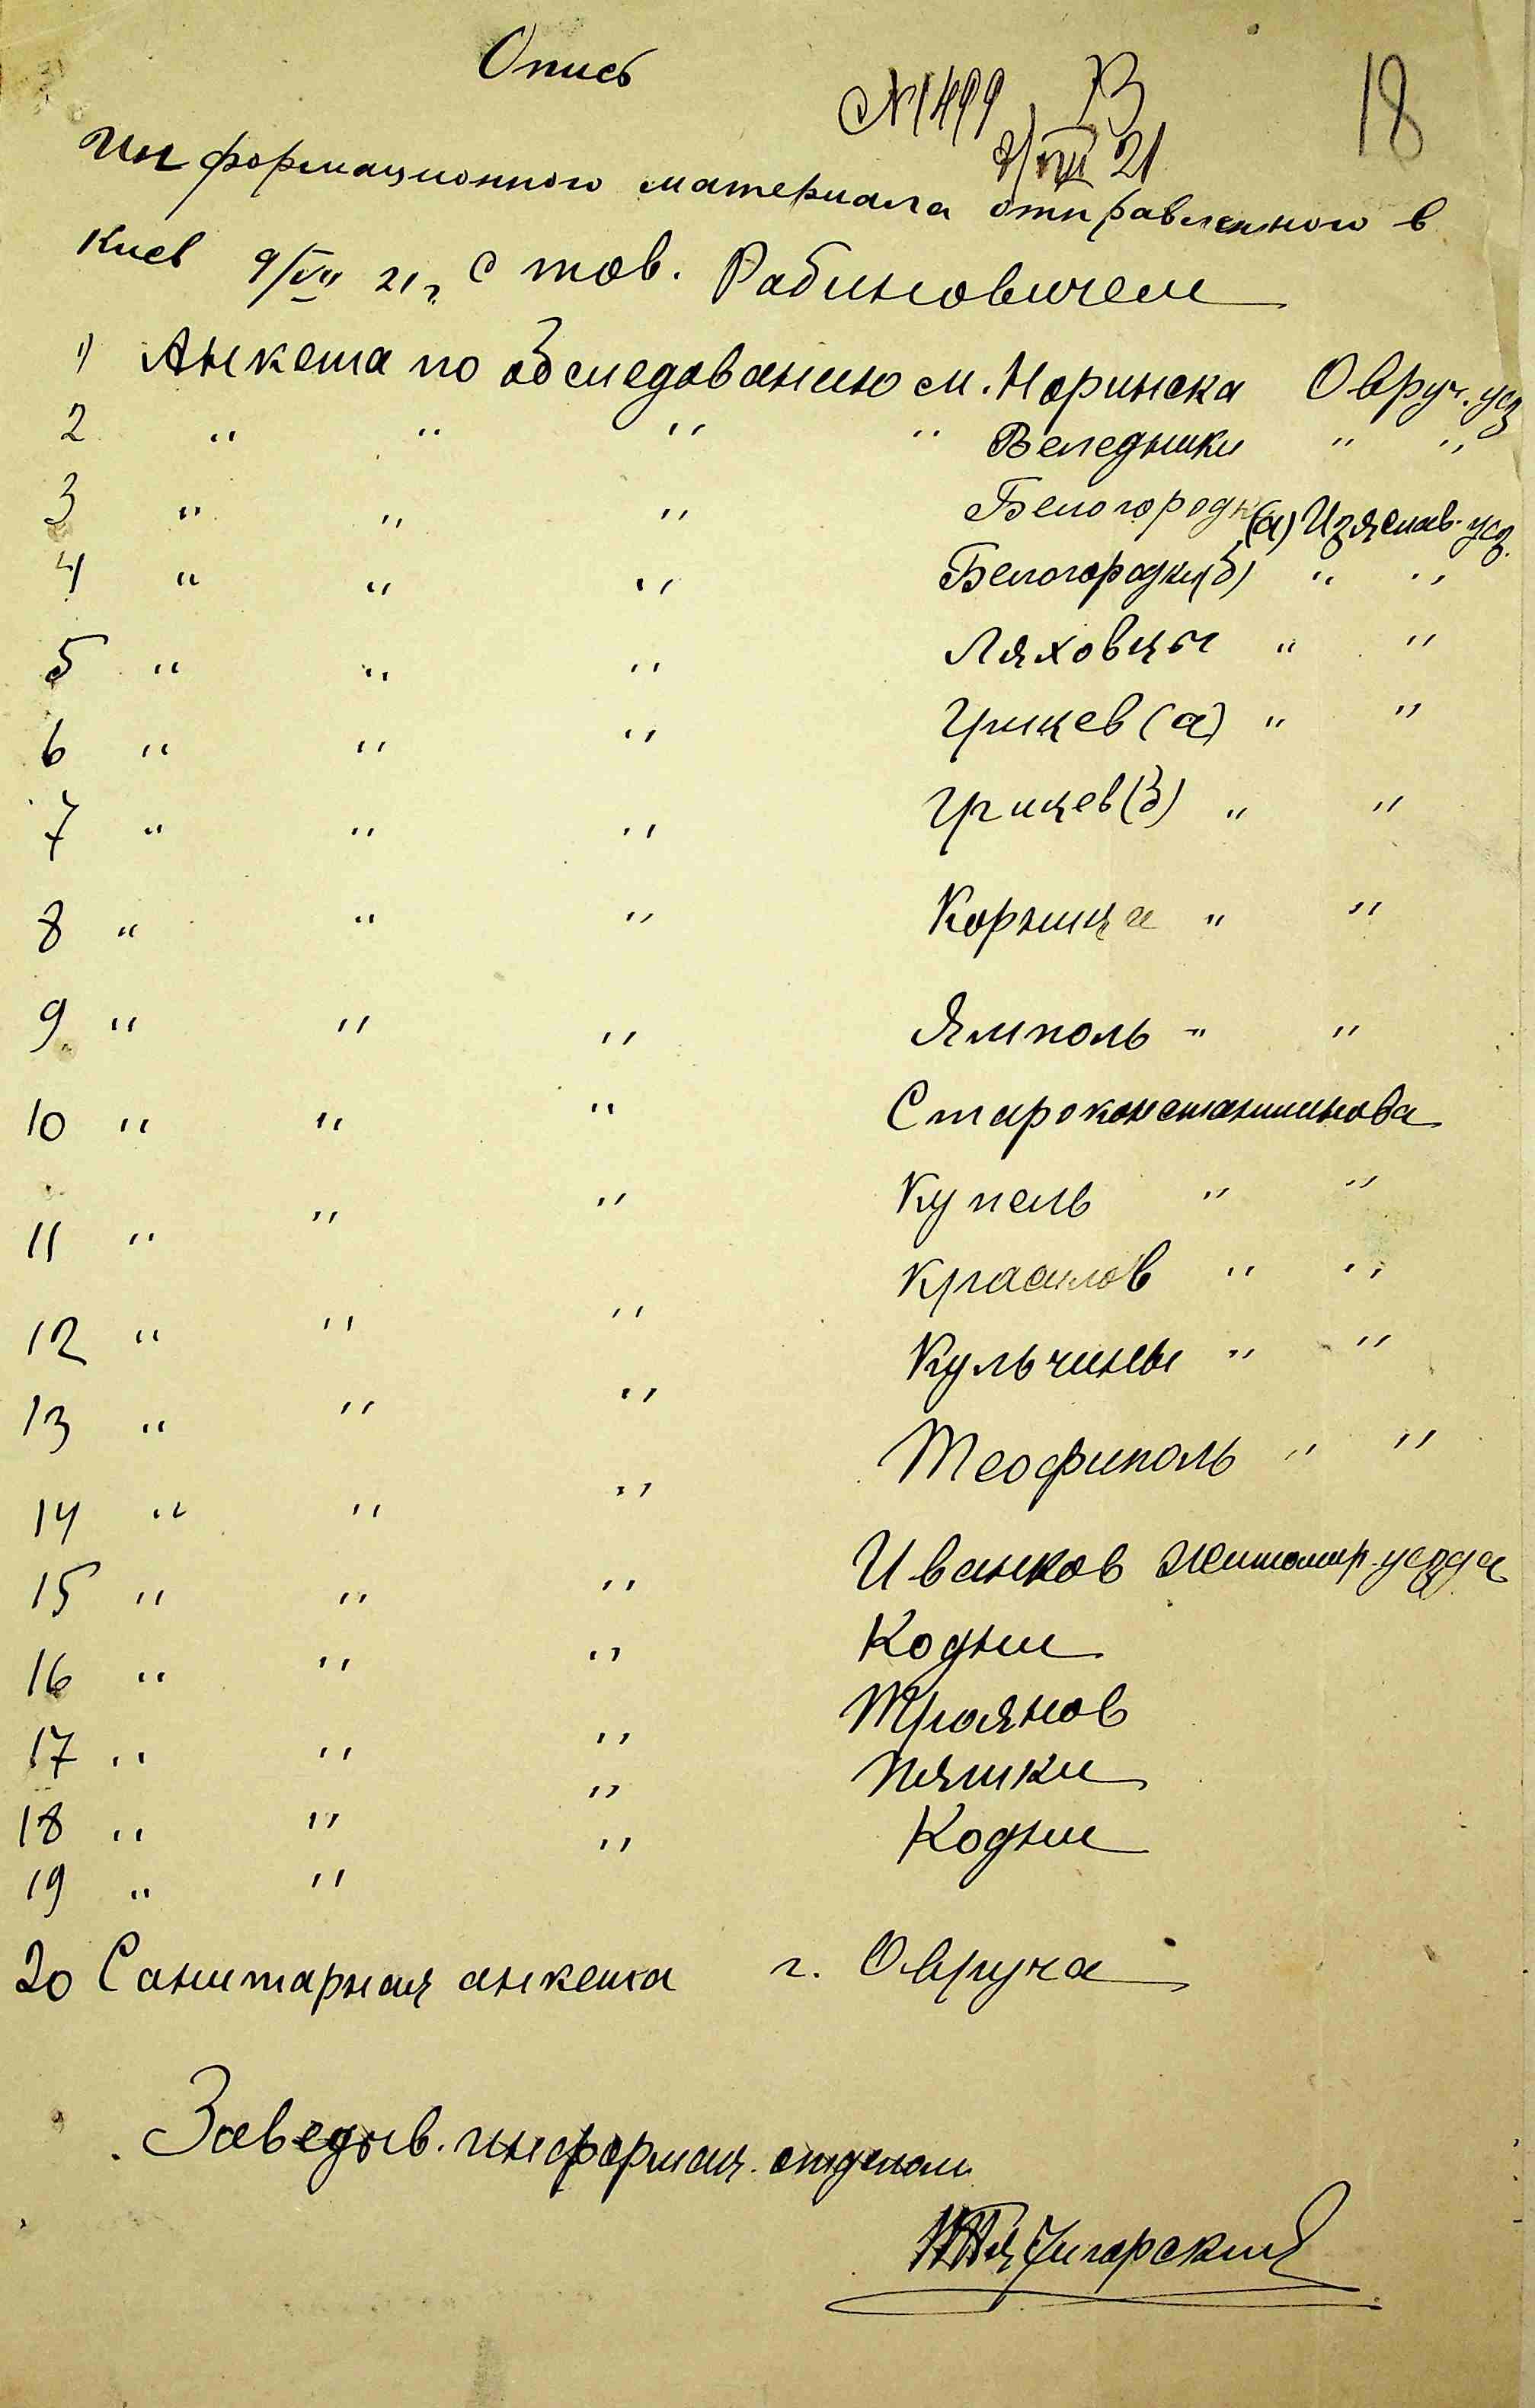 Опись
№ 1499 В 18
21
Информационного материала отправленного в
Киев 9/VII 21 г. с тов. Рабиновичем
1) Анкета по обследованию м. Норинска Овруч. уез
2 " " " " Веледники " "
3 " " " Белогородк (а) Изяслав. уез.
4 " " " Белогородки (б) " "
5 " " " Ляховцы " "
6 " " " Грицев (а) " "
7 " " " Грицев (б) " "
8 " " " Корница " "
9 " " " Ямполь " "
10 " " " Староконстантинова
11 " " " Купель " "
12 " " " Красилов " "
13 " " " Кульчины " "
14 " " " Теофиполь " "
15 " " " Иванков Житомир. уезда
16 " " " Кодни
17 " " " Троянов
18 " " " Пятки
19 " " " Кодни
20 Санитарная анкета г. Овруча
Заведыв. информац. отделом